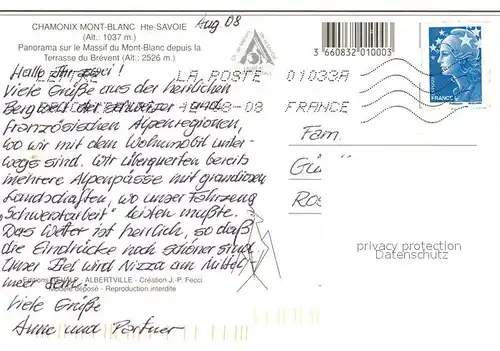 CHAMONIX MONT-BLANC Hte-SAVOIE
(Alt.: 1037 m.)
Panorama sur le Massif du Mont-Blanc depuis la
Terrasse du Brévent (Alt.: 2526 m.)
Aug 08
3660832010003
FRANCE
LA POSTE 01033A
19-08-08 FRANCE
Hallo Ihr zwei!
Viele Grüße aus der herrlichen
Bergwelt der schweizer und
französischen Alpenregionen,
wo wir mit dem Wohnmobil unter-
wegs sind. Wir überquerten bereits
mehrere Alpenpässe mit grandiosen
Landschaften, wo unser Fahrzeug
"Schwerstarbeit" leisten mußte.
Das Wetter ist herrlich, so daß
die Eindrücke noch schöner sind.
Unser Ziel wird Nizza am Mittel-
meer sein.
Viele Grüße
Anne und Partner
Fam.
Gü
Ros
privacy protection
Datenschutz
ALBERTVILLE - Création J.-P. Fecci
Modèle déposé - Reproduction interdite